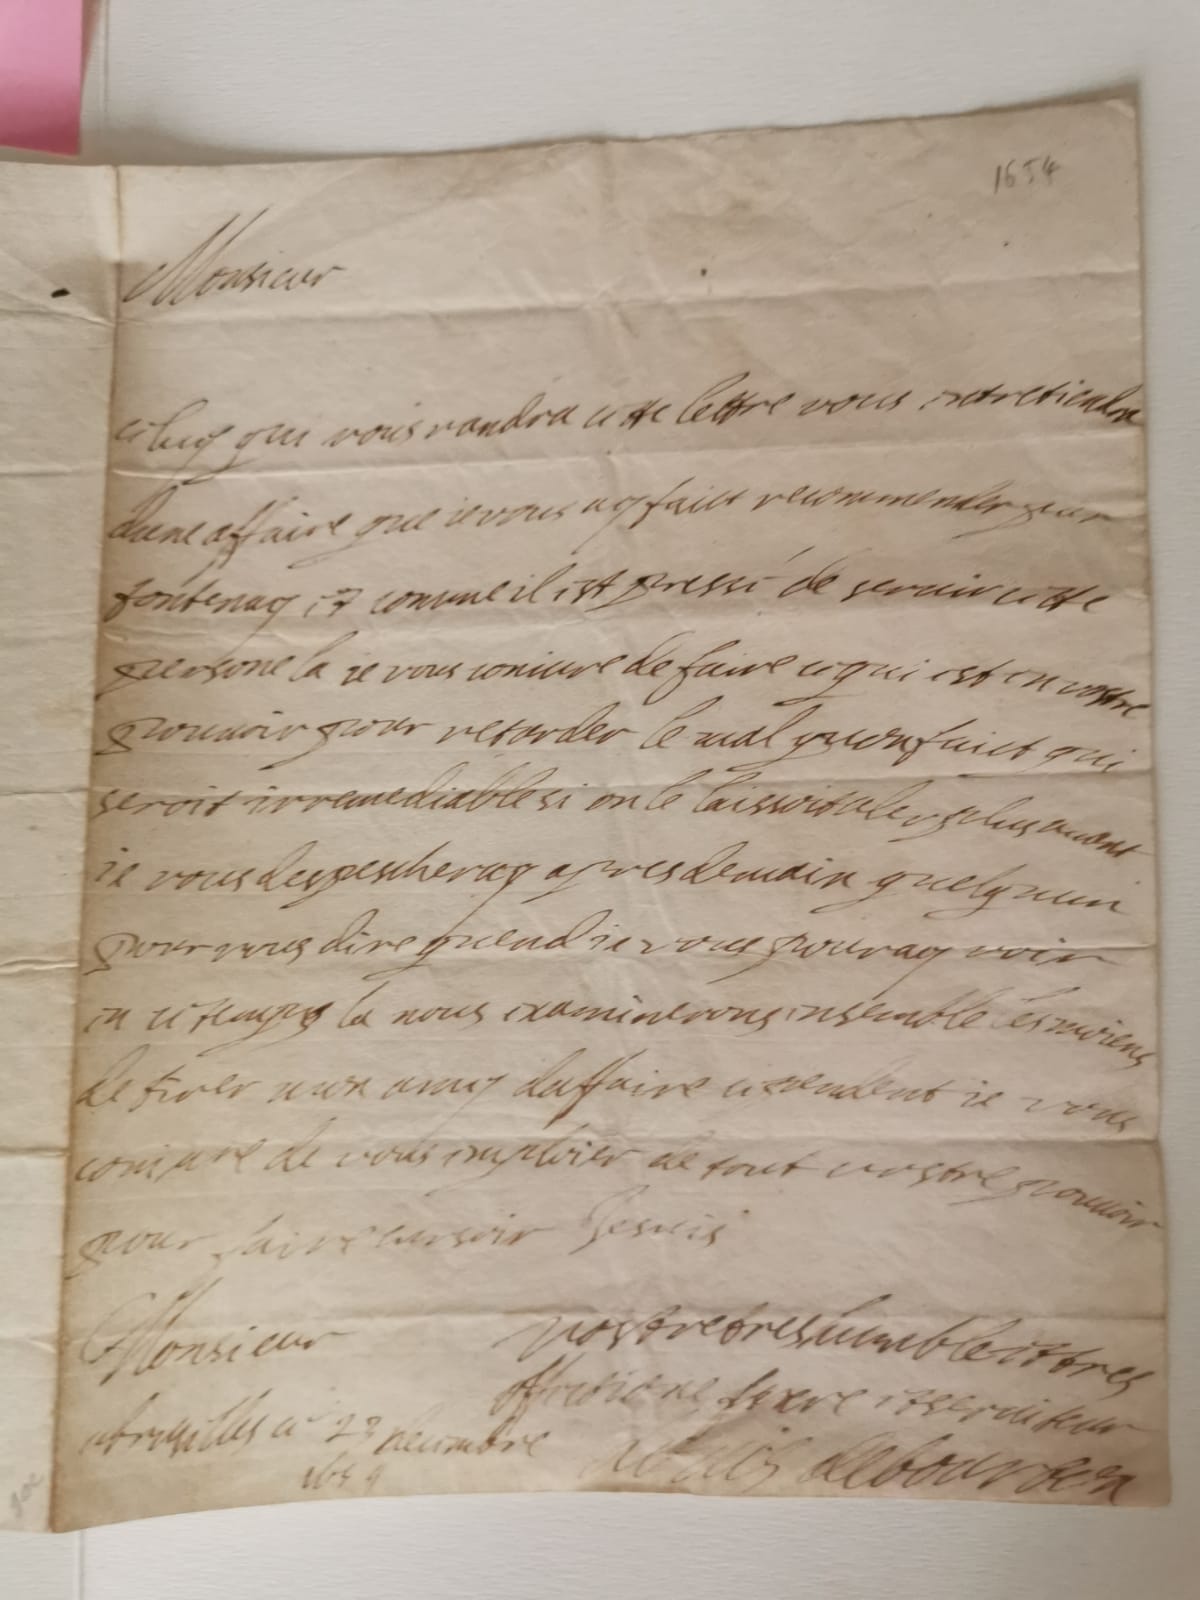 1654
Monsieur
celuy qui vous randra cette lettre vous entretiendra
dune affaire que ie vous ay faict recommender par
fontenay et comme il est pressé de servir cette
persone la ie vous coniure de faire ce qui est en vostre
pouuoir pour retarder le mal quon faict qui
seroit irremediable si on le laissoit aler plus auant
ie vous despescheray apres demain quelquun
pour vous dire quend ie vous pouray voir
en ce temps la nous examinerons ensemble les moiens
de tirer mon amy daffaire cependent ie vous
coniure de vous emploier de tout vostre pouuoir
pour faire surсoir Ie suis
Monsieur vostre tres humble et tres
affectione et seruiteur
a bruselles ce 23 decembre Louis de bourbon
1654